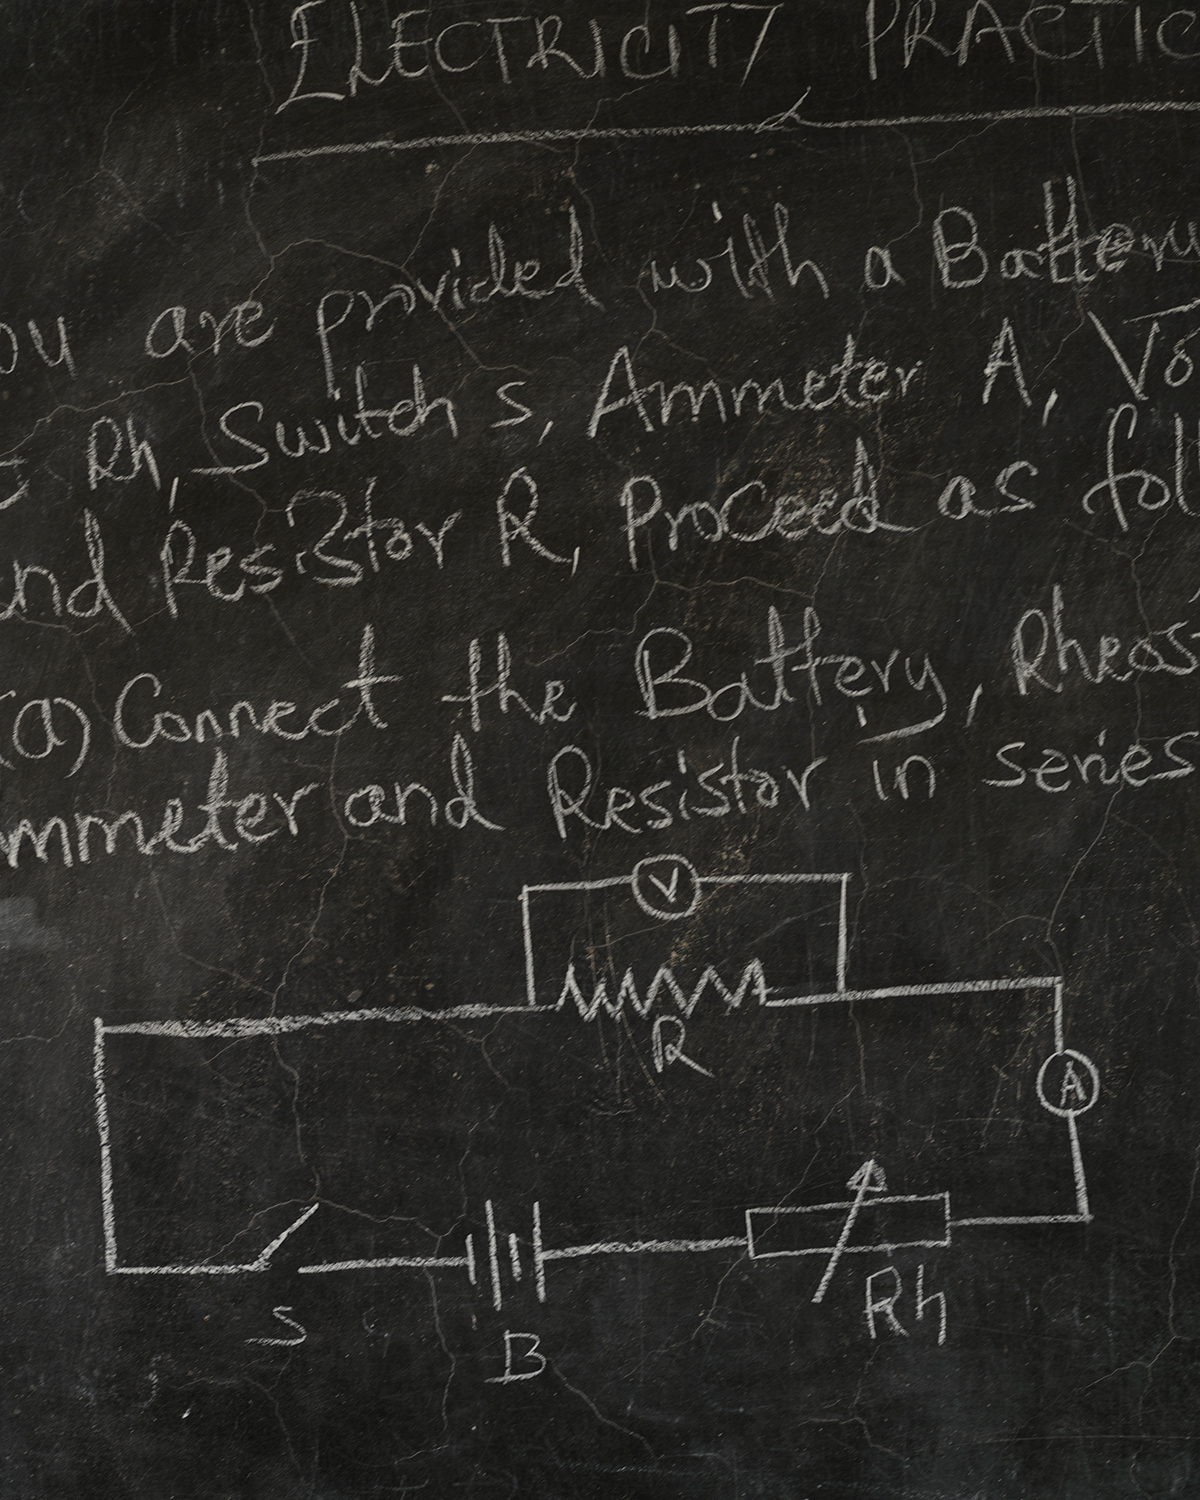 ELECTRICITY PRACTIC
ou are provided with a Battery
Rh, Switch S, Ammeter A, Vo
and Resistor R, Proceed as foll
(a) Connect the Battery, Rheos
mmeter and Resistor in series
V
R
A
S
B
Rh